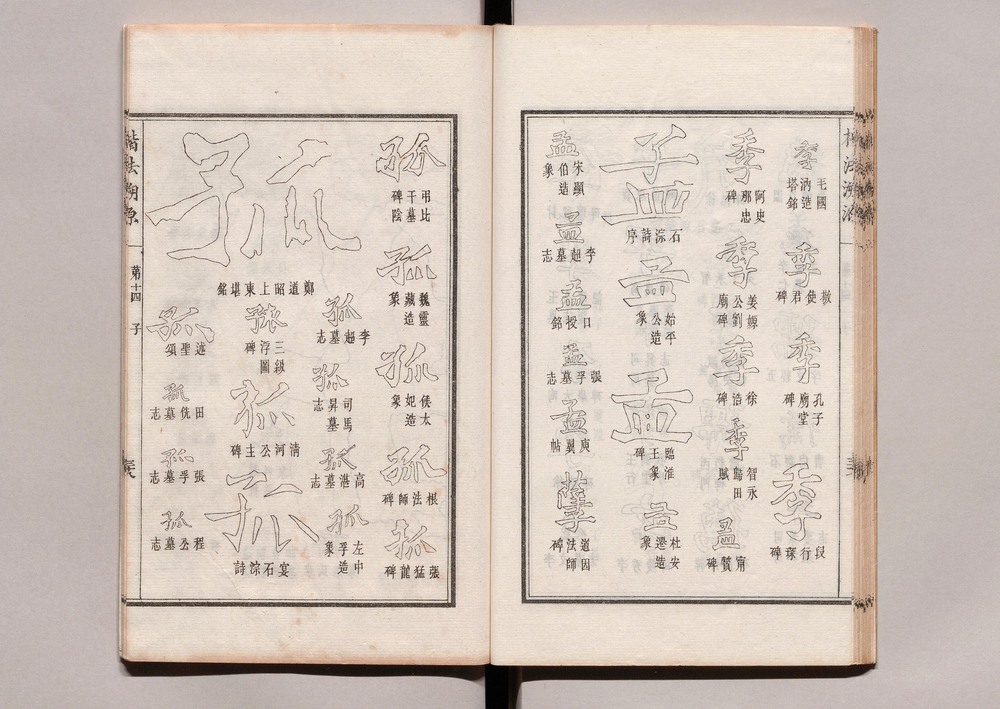 季
毛國汭造塔銘
季
使君碑
季
孔子廟堂碑
季
段行琛碑
季
阿史那忠碑
季
姜嫄公劉廟碑
季
徐浩碑
季
智永歸田賦
孟
甯贙碑
孟
石淙詩序
孟
始平公造象
孟
臨淮王象碑
孟
杜安遷造象
孟
宋顯伯造象
孟
李超墓志
孟
口授銘
孟
張孚墓志
孟
庾翼帖
孽
道因法師碑
孤
弔比干墓碑陰
孤
魏靈藏造象
孤
侯太妃造象
孤
根法師碑
孤
張猛龍碑
孤
鄭道昭上東堪銘
孤
李超墓志
孤
司馬昇墓志
孤
高湛墓志
孤
左中孚造象
孤
三級浮圖碑
孤
清河公主碑
孤
宴石淙詩
孤
述聖頌
孤
田侁墓志
孤
張孚墓志
孤
程公墓志
楷法溯源
第十四
子